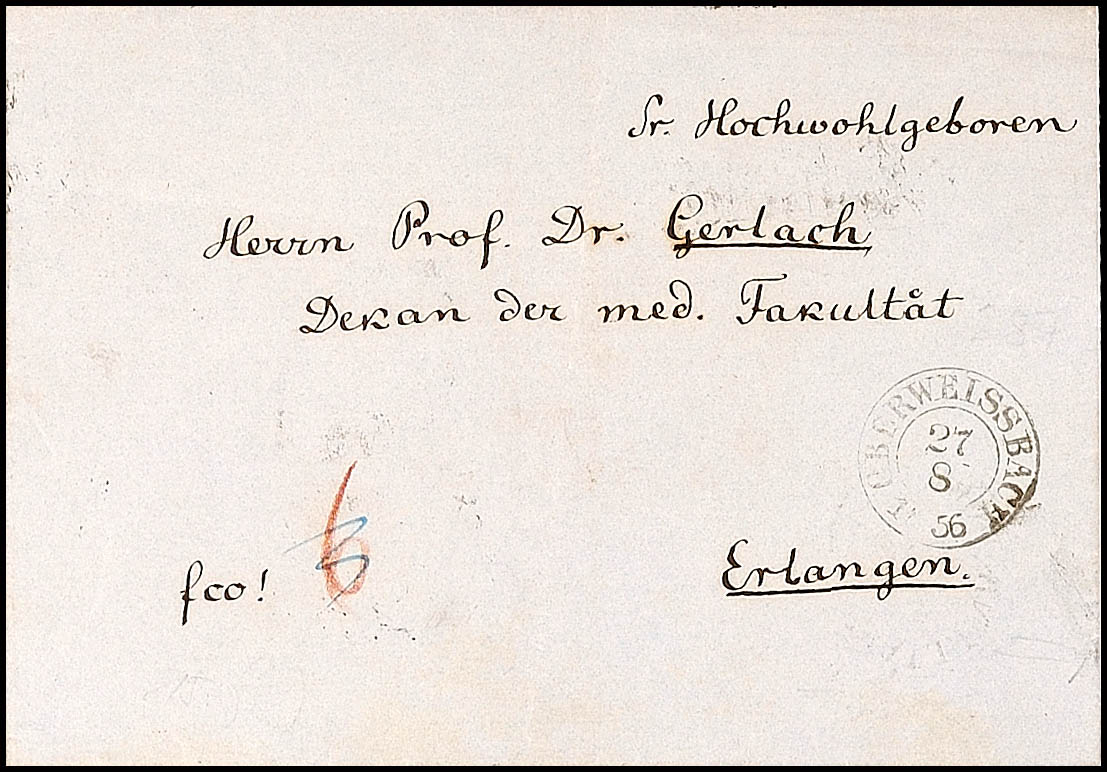 Sr. Hochwohlgeboren
Herrn Prof. Dr. Gerlach
Dekan der med. Fakultåt
OBERWEISSBACH
27
8
56
fco! 6
Erlangen.